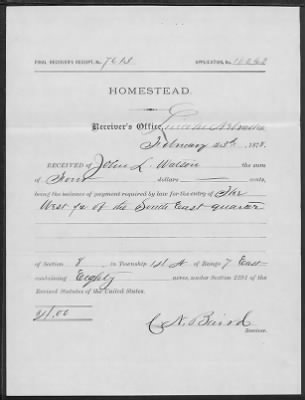 FINAL RECEIVER'S RECEIPT, No. 7618 APPLICATION, No.
HOMESTEAD.
Receiver's Office, Lincoln Nebraska
February 25th, 1878.
RECEIVED of John L. Watson the sum
of Four dollars cents,
being the balance of payment required by law for the entry of The
West ½ of the South East quarter
of Section 8 in Township 1st N of Range 7 East
containing Eighty acres, under Section 2291 of the
Revised Statutes of the United States.
$4.00
C. N. Baird
Receiver.